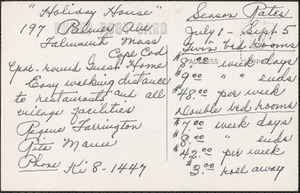 "Holiday House"
197 Palmer Ave
Falmouth Mass.
Cape Cod
Year-round Guest Home
Easy walking distance
to restaurants and all
village facilities
Pegeue Farrington
Rita Maurer
Phone Ki 8-1447
Season Rates
July 1 - Sept. 5
Twin bed Rooms
$8.00 week days
$9.00 " ends
$48.00 per week
Double bed rooms
$7.00 week days
$8.00 " ends
$42.00 per week
$3.00 roll away